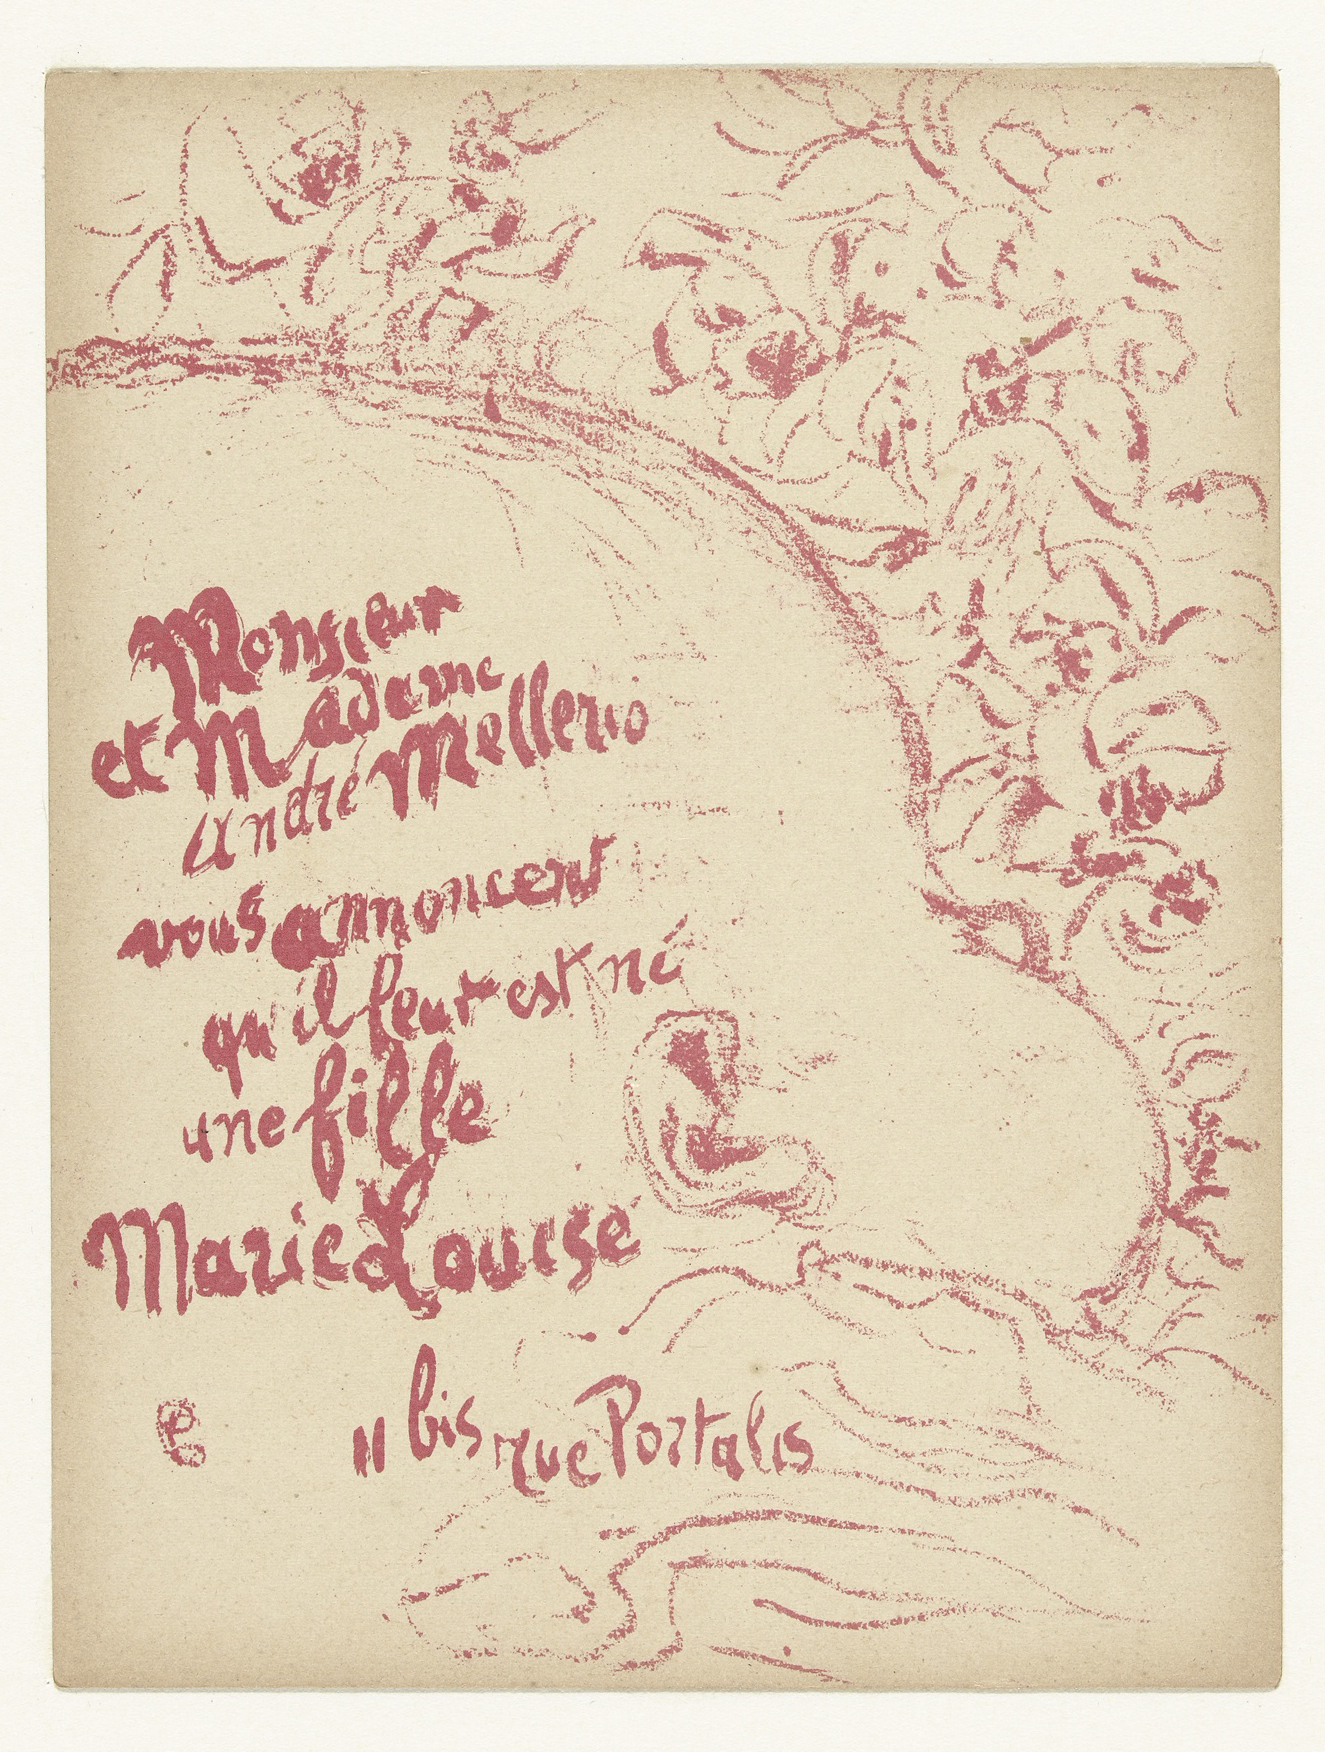 Monsieur
et Madame
André Mellerio
vous annoncent
qu'il leur est né
une fille
Marie Louise
11 bis rue Portalis
PB